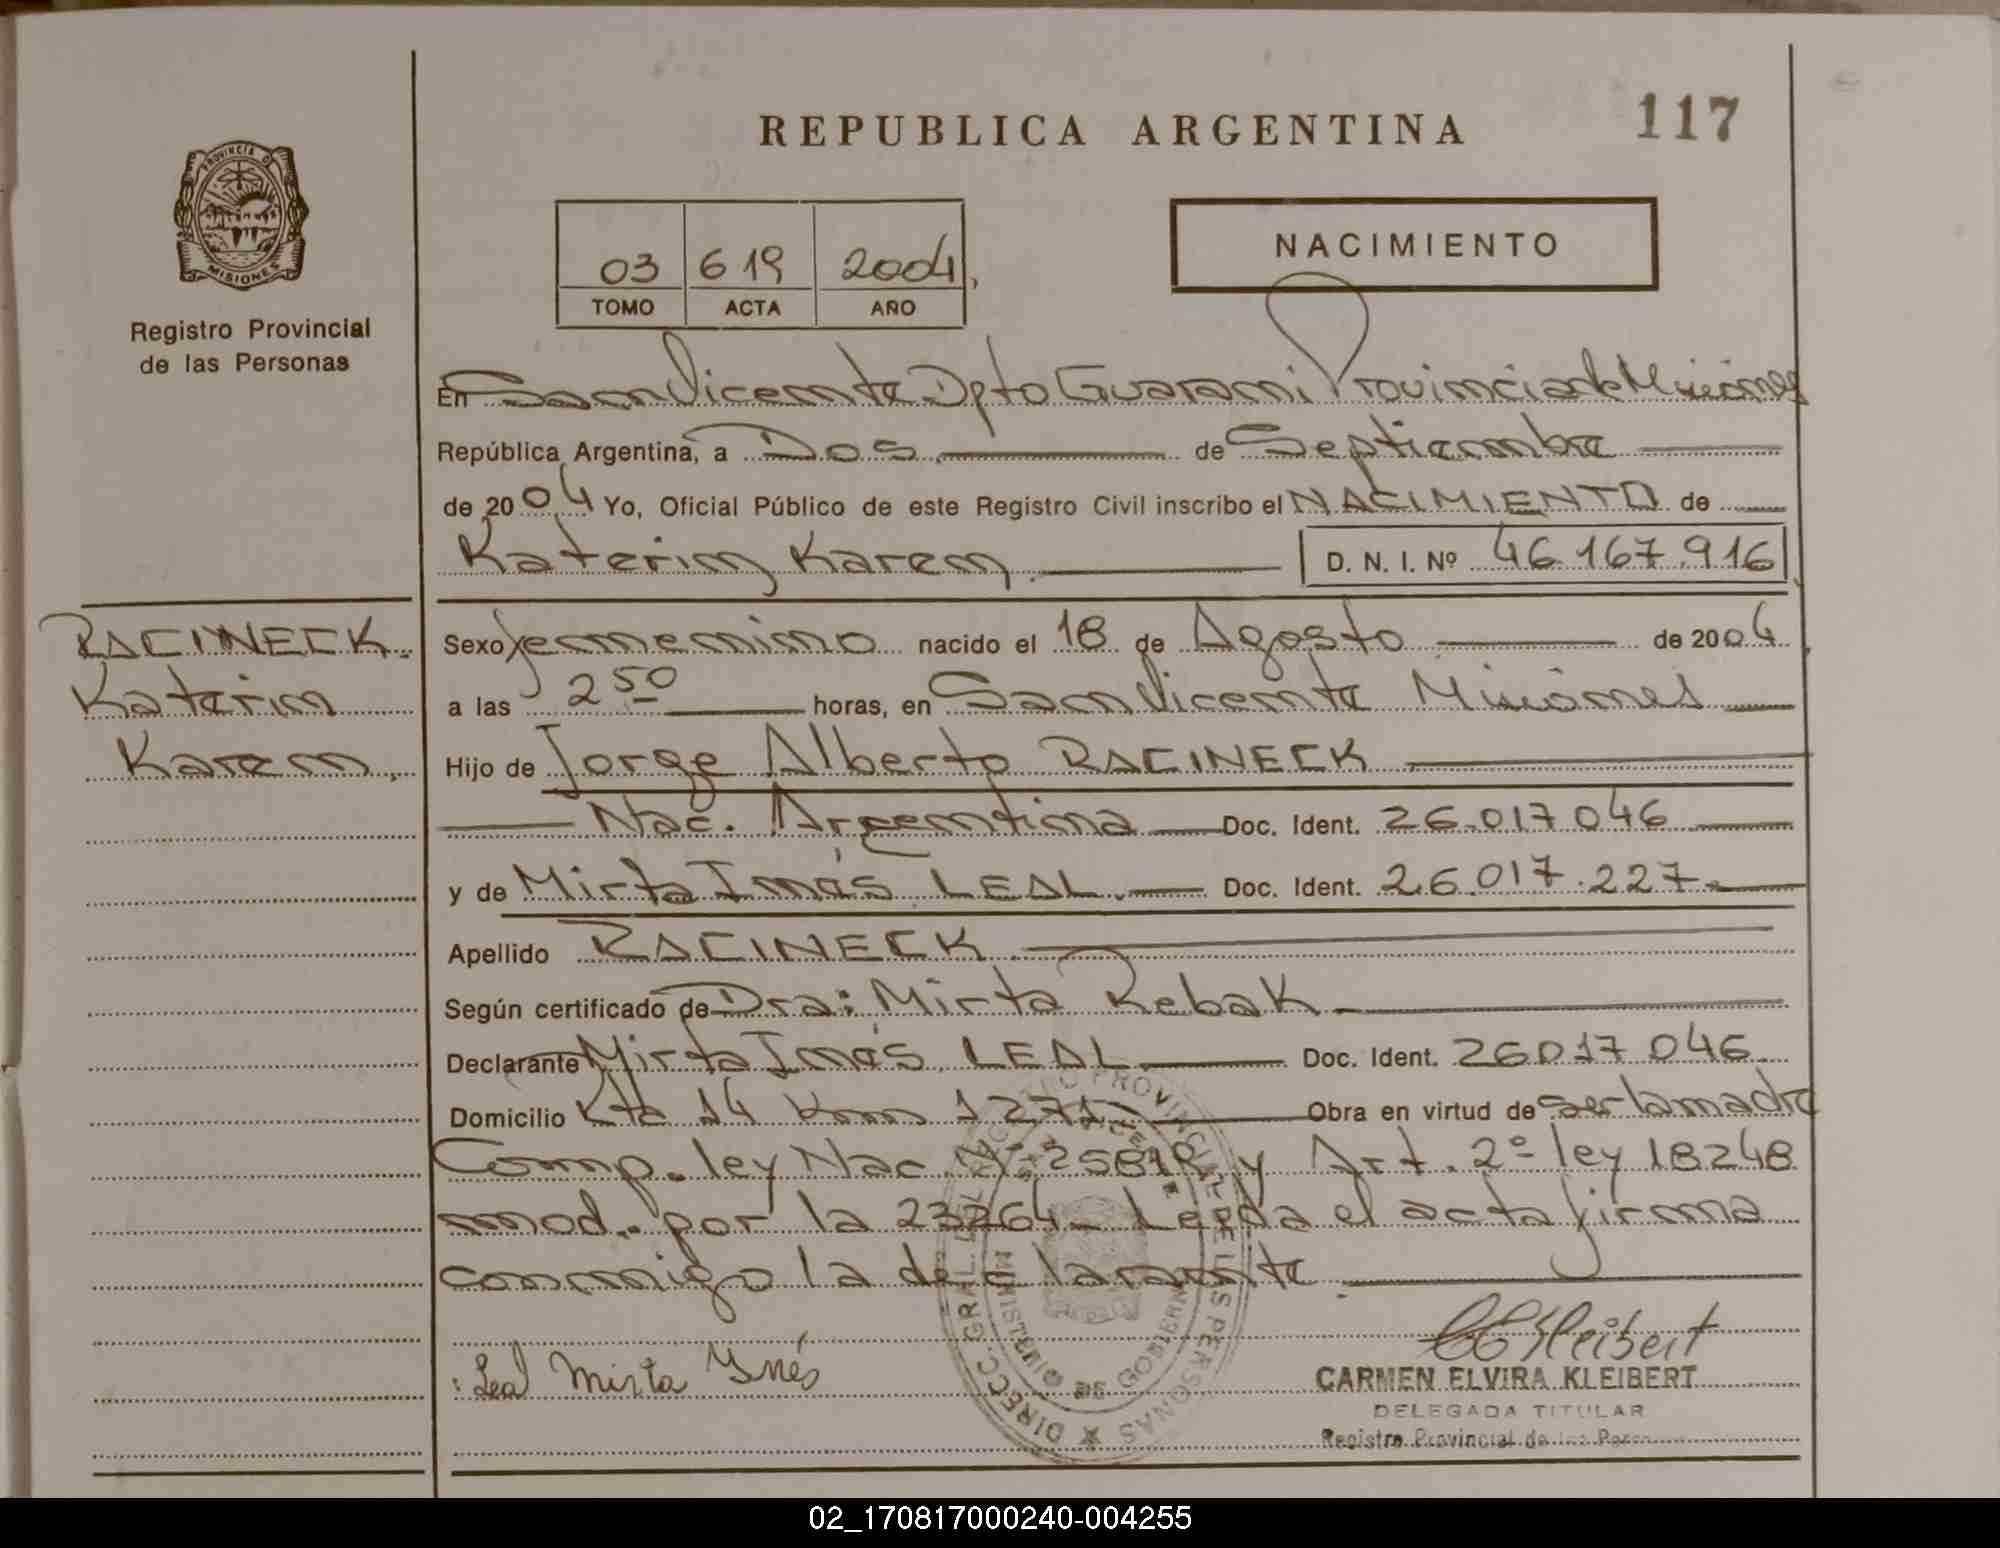 REPUBLICA ARGENTINA
117
PROVINCIA DE
MISIONES
Registro Provincial
de las Personas
03 619 2004
TOMO ACTA AÑO
NACIMIENTO
En San Vicente Dpto Guarani Provincia de Misiones
República Argentina, a Dos de Septiembre
de 2004 Yo, Oficial Público de este Registro Civil inscribo el NACIMIENTO de
Katerin Karem D. N. I. Nº 46.167.916
RACINNECK
Katerin
Karem
Sexo femenino nacido el 18 de Agosto de 2004
a las 2 50 horas, en San Vicente Misiones
Hijo de Jorge Alberto RACINECK
Nac. Argentina Doc. Ident. 26.017.046
y de Mirta Inés LEAL Doc. Ident. 26.017.227
Apellido RACINECK
Según certificado de Dra: Mirta Rebak
Declarante Mirta Inés LEAL Doc. Ident. 26017046
Domicilio Rta 14 Km 1271 Obra en virtud de ser la madre
Comp. ley Nac. Nº 25818 y Art. 2º ley 18248
mod. por la 23264 - Leída el acta firma
conmigo la declarante
Leal Mirta Ynés
CEKleibert
CARMEN ELVIRA KLEIBERT
DELEGADA TITULAR
Registro Provincial de las
DIRECC. GRAL. DEL REGISTRO PROVINCIAL DE LAS PERSONAS
MINISTERIO DE GOBIERNO
02_170817000240-004255